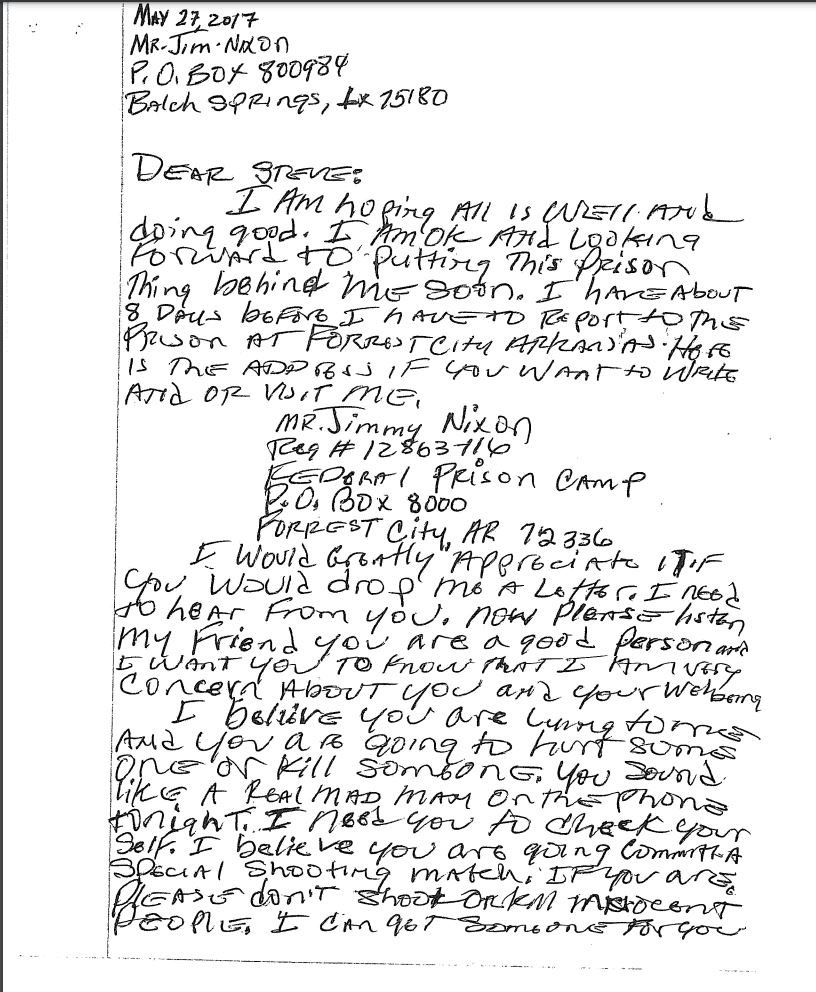 MAY 27, 2017
MR. Jim. Nixon
P. O. BOX 800984
Balch SPRings, tx 75180
DEAR STEVE:
I AM hoping All is WEll And
doing good. I Am OK And Looking
Forward to putting This Prison
Thing behind ME Soon. I HAVE About
8 Days before I HAVE to Report to the
Prison AT FORREST City ARKANSAS. Here
is THE ADDRESS if you WANT to Write
And OR VISIT ME.
MR. Jimmy Nixon
Reg #
FEDERAl PRison CAMP
P.O. BOX 8000
FORREST City, AR 72336
I WOULD GREATly Appreciate IT.if
you Would drop me A Letter. I need
to hear From you. now PLEASE listen
my Friend you are a good Person and
I WANT you TO Know THAT I Am very
Concern ABOUT you and your Wellbeing
I believe you are lying to me
And you are going to hurt some
ONE OR Kill SOMEONE. You Sound
like A REAl MAD MAN On the phone
tonight. I need you to check your
Self. I believe you are going Commit A
Special Shooting match. IF you are.
PLEASE don't Shoot OR kill innocent
PEOPLE. I CAN get SOMEONE FOR you